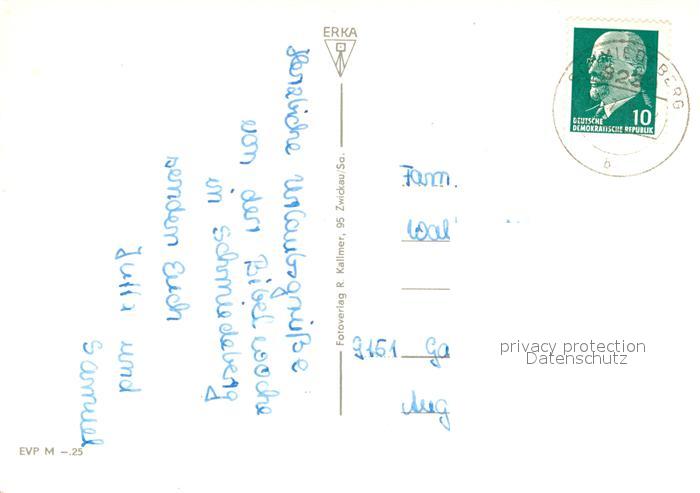 ERKA
Herzliche Urlaubsgrüße
von der Bibelwoche
in Schmiedeberg
senden Euch
und
Samuel
Fotoverlag R. Kallmer, 95 Zwickau/Sa.
EVP M –.25
DEUTSCHE
DEMOKRATISCHE REPUBLIK
10
SCHMIEDEBERG
b
Fam.
Wal
9151 Ga
Aug
privacy protection
Datenschutz